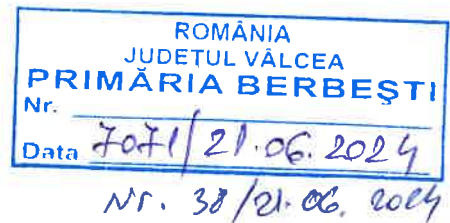 ROMÂNIA
JUDEȚUL VÂLCEA
PRIMĂRIA BERBEȘTI
Nr.
Data 7071/21.06.2024
Nr. 38/21.06.2024